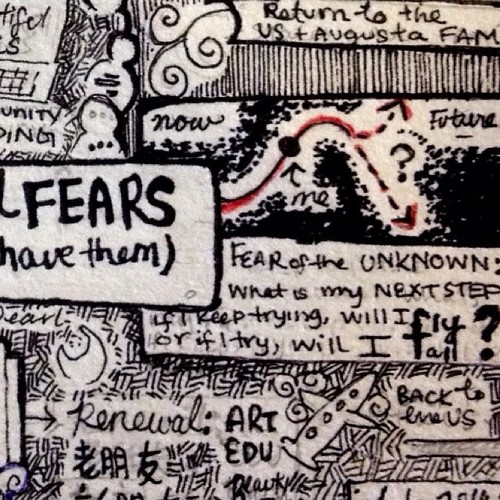 Return to the
US + Augusta FAM
UNITY
DING
now
Future
?
me
FEARS
have them)
FEAR of the UNKNOWN:
What is my NEXT STEP
if I keep trying, will I fly
or if I try, will I fail ?
Pearl
Renewal: ART
EDU
老朋友
BACK to
the US